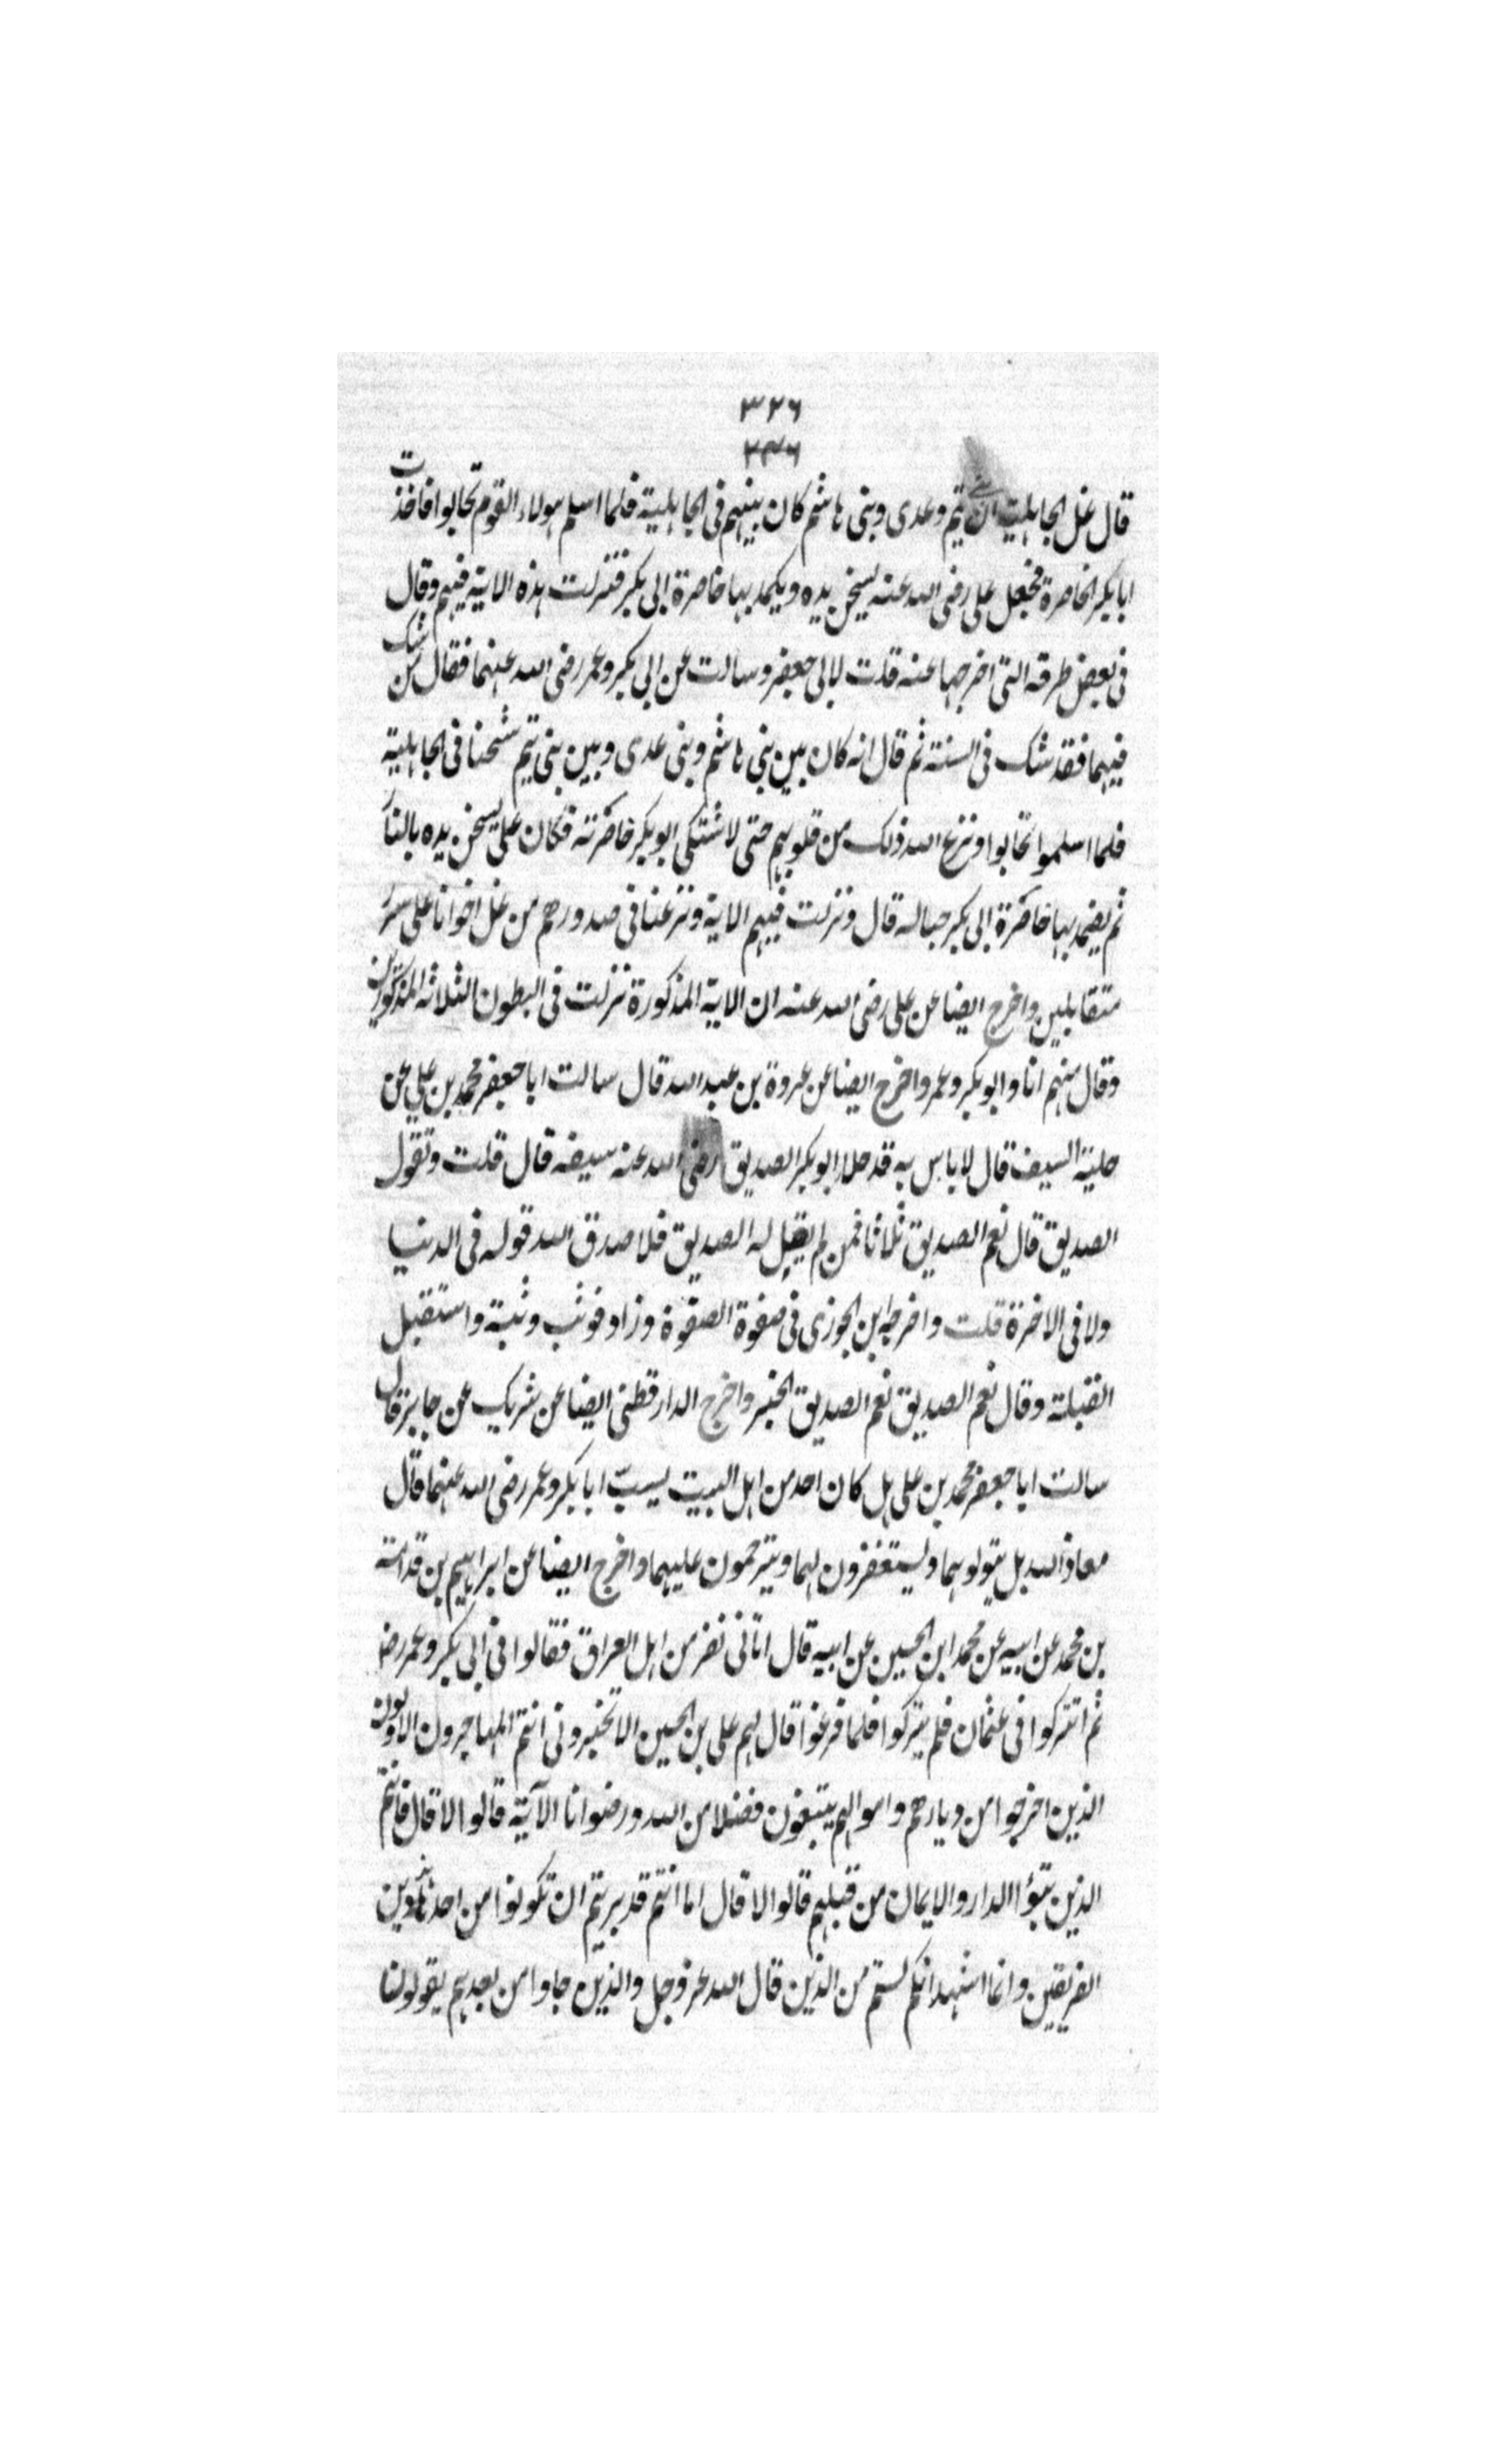 ۳۲۶
۳۳۶
قال غل الجاهلية ان بني تيم وعدى وبنى هاشم كان بينهم فى الجاهلية فلما اسلم هولاء القوم تحابوا فاخذت
ابا بكر الخاصرة فجعل على رضى الله عنه يسخن يده ويكمد بها خاصرة ابى بكر فنزلت هذه الاية فيهم وقال
فى بعض طرقه التى اخرجها عنه قلت لابى جعفر وسالت عن ابى بكر وعمر رضى الله عنهما فقال من شك
فيهما فقد شك فى السنة ثم قال انه كان بين بنى هاشم وبنى عدى وبين بنى تيم شحنا فى الجاهلية
فلما اسلموا تحابوا ونزع الله ذلك من قلوبهم حتى لاشتكى ابو بكر خاصرته فكان على يسخن يده بالنار
ثم يضمد بها خاصرة ابى بكر حبا له قال ونزلت فيهم الاية ونزعنا فى صدورهم من غل اخوانا على سرر
متقابلين واخرج ايضا عن على رضى الله عنه ان الاية المذكورة نزلت فى البطون الثلاثه المذكورين
وقال منهم انا وابو بكر وعمر واخرج ايضا عن عروة بن عبد الله قال سالت ابا جعفر محمد بن على عن
حلية السيف قال لا باس به قد حلا ابو بكر الصديق رضى الله عنه سيفه قال قلت وتقول
الصديق قال نعم الصديق ثلاثا فمن لم يقل له الصديق فلا صدق الله قوله فى الدنيا
ولا فى الاخرة قلت واخرجه ابن الجوزى فى صفوة الصفوة وزاد فوثب وثبة واستقبل
القبلة وقال نعم الصديق نعم الصديق الخبر واخرج الدار قطنى ايضا عن شريك عن جابر قال
سالت ابا جعفر محمد بن على هل كان احد من اهل البيت يسبّ ابا بكر وعمر رضى الله عنهما قال
معاذ الله بل يتولوهما ويستغفرون لهما ويترحمون عليهما واخرج ايضا عن ابراهيم بن قدامة
بن محمد عن ابيه عن محمد ابن الحسين عن ابيه قال اتانى نفر من اهل العراق فقالوا فى ابى بكر وعمر رضا
ثم اتتركوا فى عثمان فلم يتركوا فلما فرغوا قال لهم على بن الحسين الا تخبرونى انتم المهاجرون الاولون
الذين اخرجوا من ديارهم واموالهم يبتغون فضلا من الله ورضوانا الآية قالوا لا قال فانتم
الذين تبوؤا الدار والايمان من قبلهم قالوا لا قال اما انتم قد بريتم ان تكونوا من احد هذين
الفريقين وانا اشهد انكم لستم من الذين قال الله عز وجل والذين جاوا من بعدهم يقولون